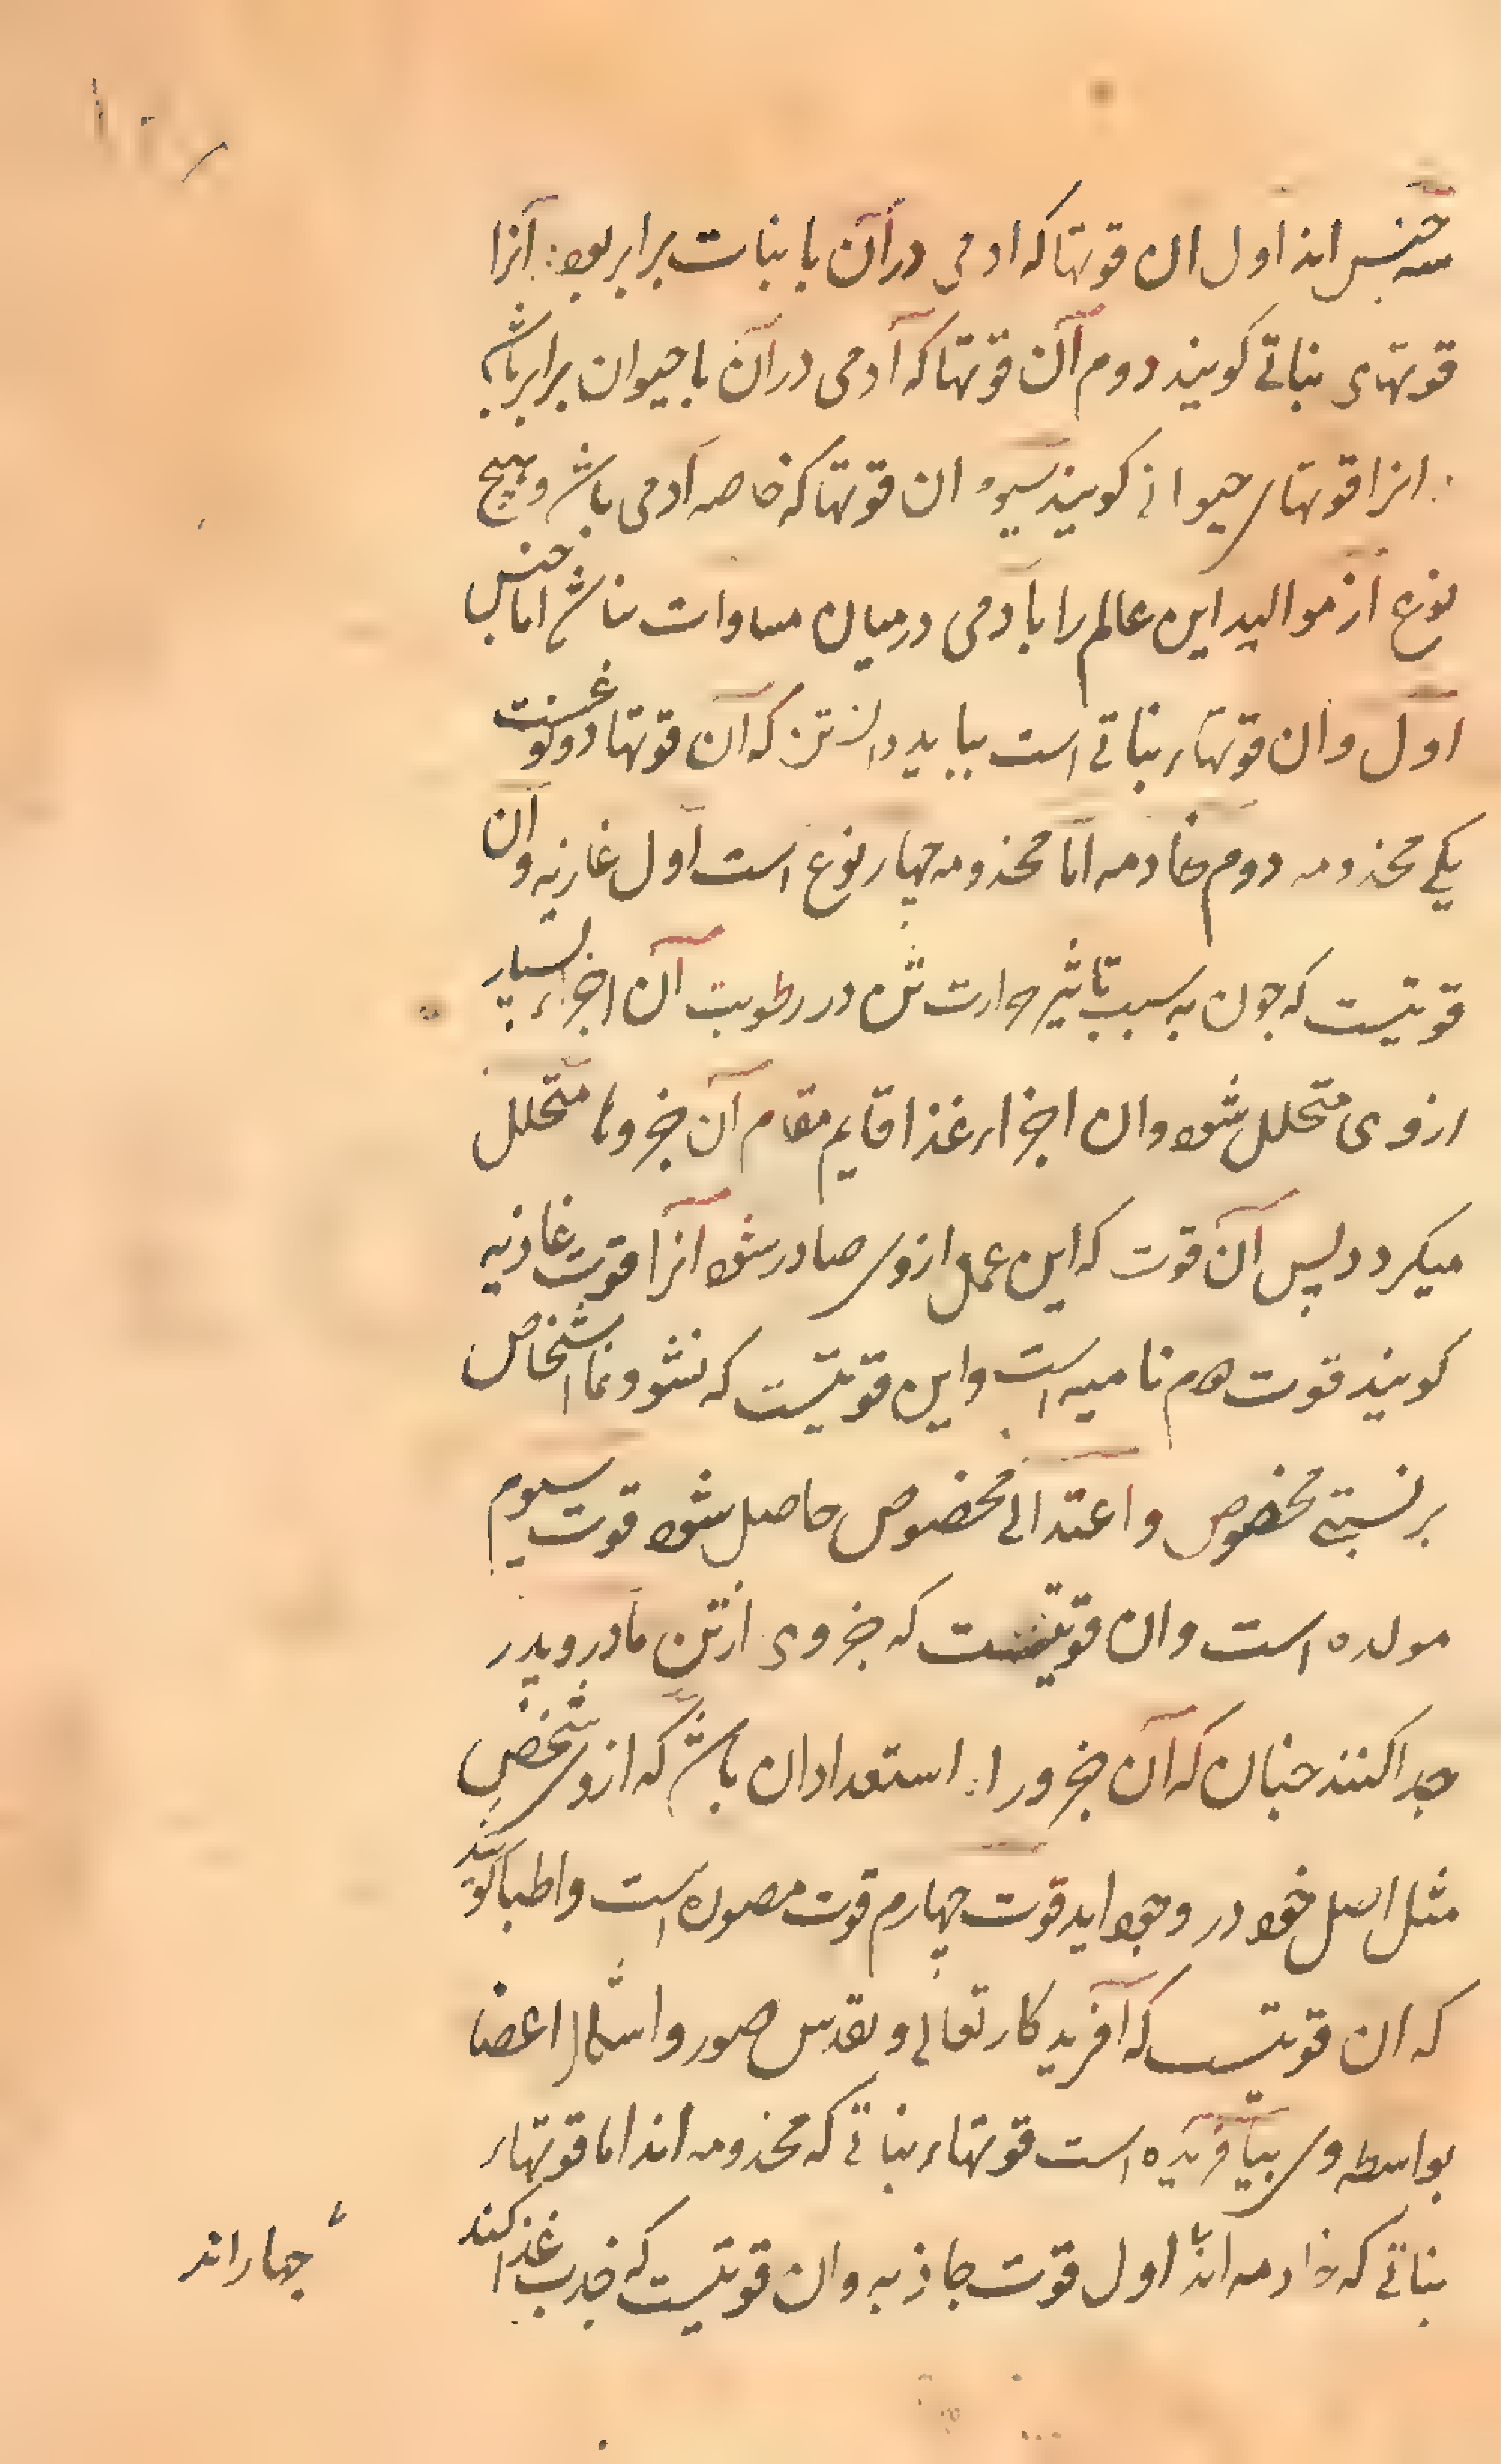 سه جنس اند اول ان قوتها که ادمی درآن با بنات برابر بود آنرا
قوتهای بناتی کویند دوم آن قوتها که آدمی درآن با حیوان برابر باشد
انرا قوتهاء حیوانی کویند سیوم ان قوتها که خاصه آدمی باشد و هیچ
نوع از موالید این عالم را بآدمی درمیان مساوات نباشد اما جنس
اول وان قوتهاء بناتی است بباید دانستن که آن قوتها دو نوعست
یکی مخدومه دوم خادمه اما مخدومه چهار نوع است اول غازیه و آن
قوتیست که چون به سبب تاثیر حرارت تن در رطوبت آن اجزاء بسیار
ازوی متحلل شود وان اجزاء غذا قایم مقام آن جزوها متحلل
میکردد پس آن قوت که این عمل ازوی صادر شود آنرا قوت غاذیه
کویند قوت دوم نامیه است واین قوتیست که نشو ونما اشخاص
بر نسبتی مخصوص واعتدالی مخصوص حاصل شود قوت سیوم
مولده است وان قوتیست که جزوی از تن مادر وپدر
جدا کنند چنان که آن جزورا استعداد ان باشد که ازوی شخص
مثل اصل خود در وجود اید قوت چهارم قوت مصوره است واطبا کویند
که ان قوتیست که آفریدکار تعالی وتقدس صور واشکال اعضا
بواسطه وی بیآفریده است قوتهاء بناتی که مخدومه اند اما قوتهاء
بناتی که خادمه اند اول قوت جاذبه وان قوتیست که جذب غذا کند
چهار اند